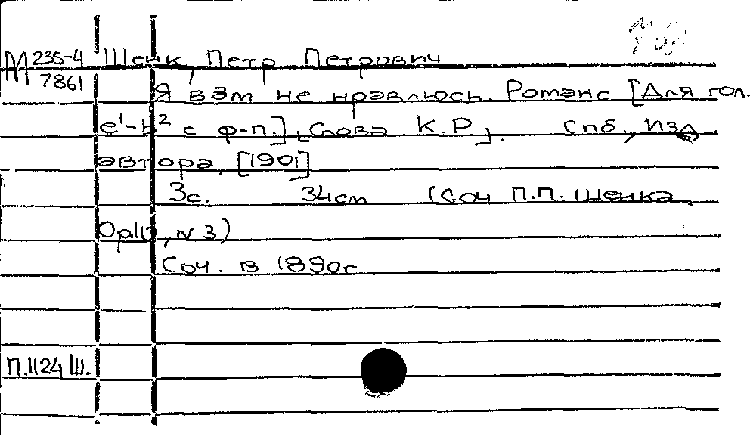 М 235-4 Шенк, Петр Петрович
7861
Я вам не нравлюсь. Романс [Для гол.
e¹-h² с ф-п.], [Слова К.Р.]. Спб., Изд.
автора, [1901]
3с. 34см (Соч. П.П. Шенка,
Op11, N3)
Соч. в 1890с
П.1124 Ш.